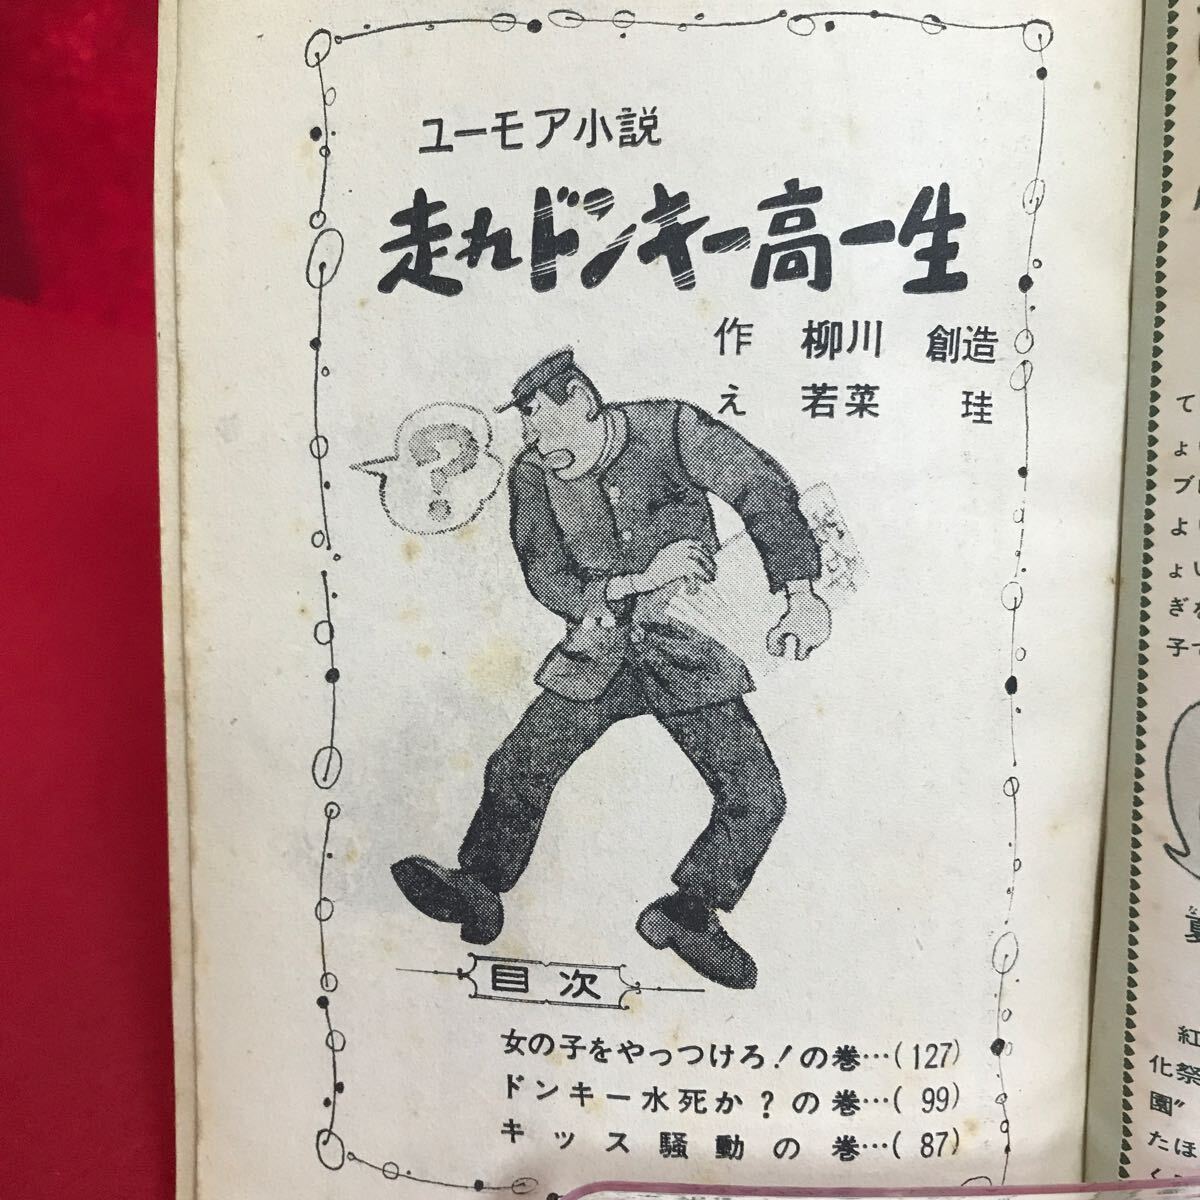 ユーモア小説
走れドンキー高一生
作 柳川 創造
え 若菜 珪
?
目次
女の子をやっつけろ!の巻…(127)
ドンキー水死か?の巻…(99)
キッス騒動の巻…(87)
て
ょ
ブ
よ
ょい
ぎ
子
夏
紅
化祭
園”
たほ